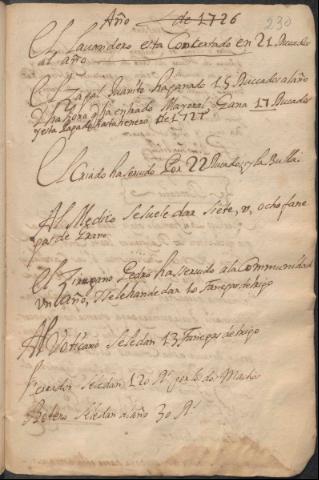 Año de 1726
230
El lauandero esta Contentado en 21 Ducados
al año
El Zagal Juanito ha ganado 15 Ducados al año
ha entrado Mayoral Gana 17 Ducados
y esta pagado hasta henero de 1727
El Criado ha seruido Por 22 Ducados y la Bulla
Al Medico se suele dar siete, u, ocho fane
gas de grano
El Zirujano Pedro ha seruido a la Communidad
un año, se le han de dar 10 fanegas de trigo
Al Boticario se le dan 13 fanegas de trigo
se le dan 120 Rs por lo de Macho
se le dan al año 30 Rs